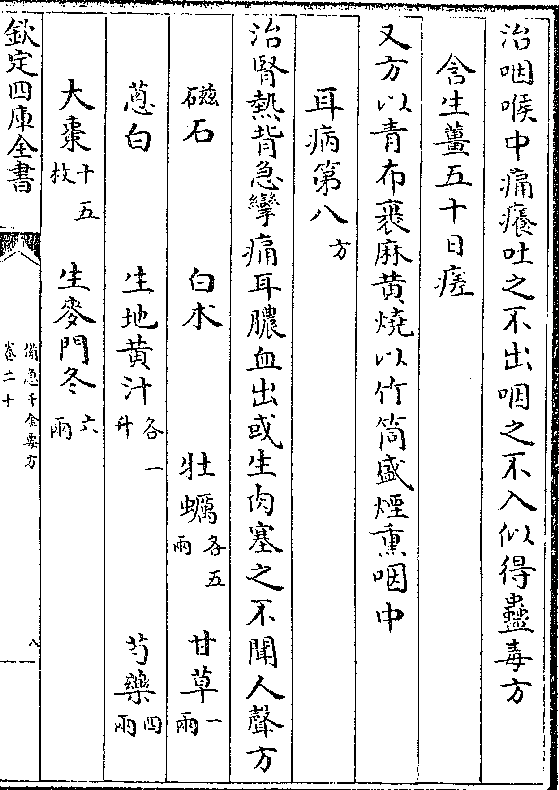 治咽喉中痛癢吐之不出咽之不入似得蠱毒方
含生薑五十日瘥
又方以青布裹麻黄燒以竹筒盛煙熏咽中
耳病第八方
治腎熱背急攣痛耳膿血出或生肉塞之不聞人聲方
磁石 白朮 牡蠣各五兩 甘草一兩
葱白 生地黄汁各一升 芍藥四兩
大棗十五枚 生麥門冬六兩
欽定四庫全書
備急千金要方
卷二十
八